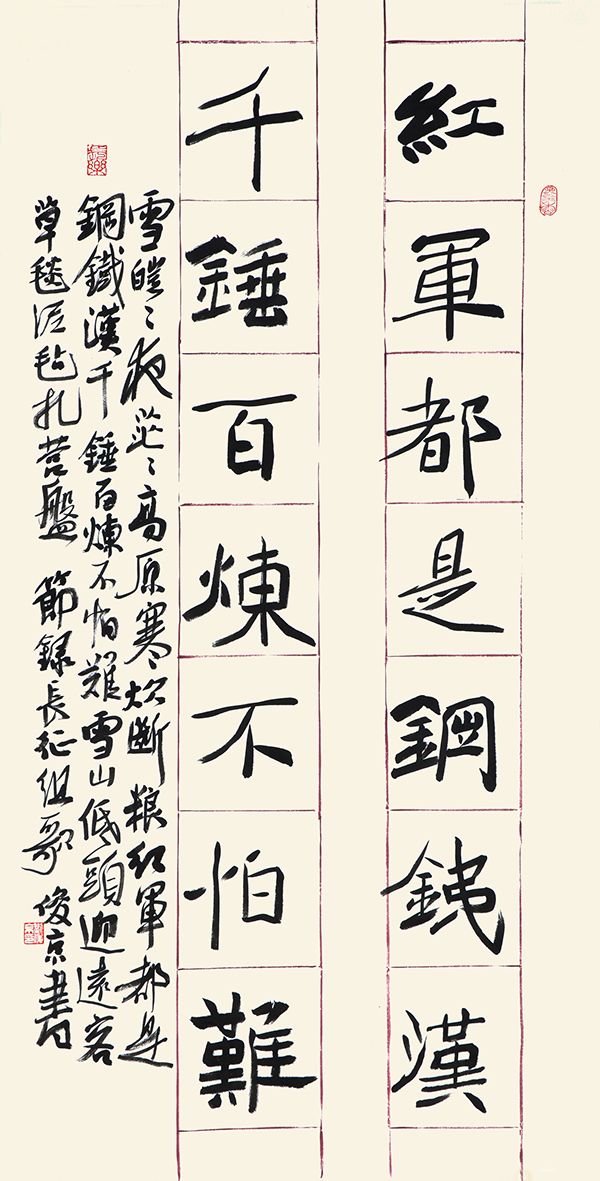 紅軍都是鋼銕漢
千錘百煉不怕難
雪皚〻夜茫〻高原寒炊斷粮紅軍都是
鋼鐵漢千錘百煉不怕難雪山低頭迎遠客
草毯泥毡扎營盤 節録長征組歌 俊京書